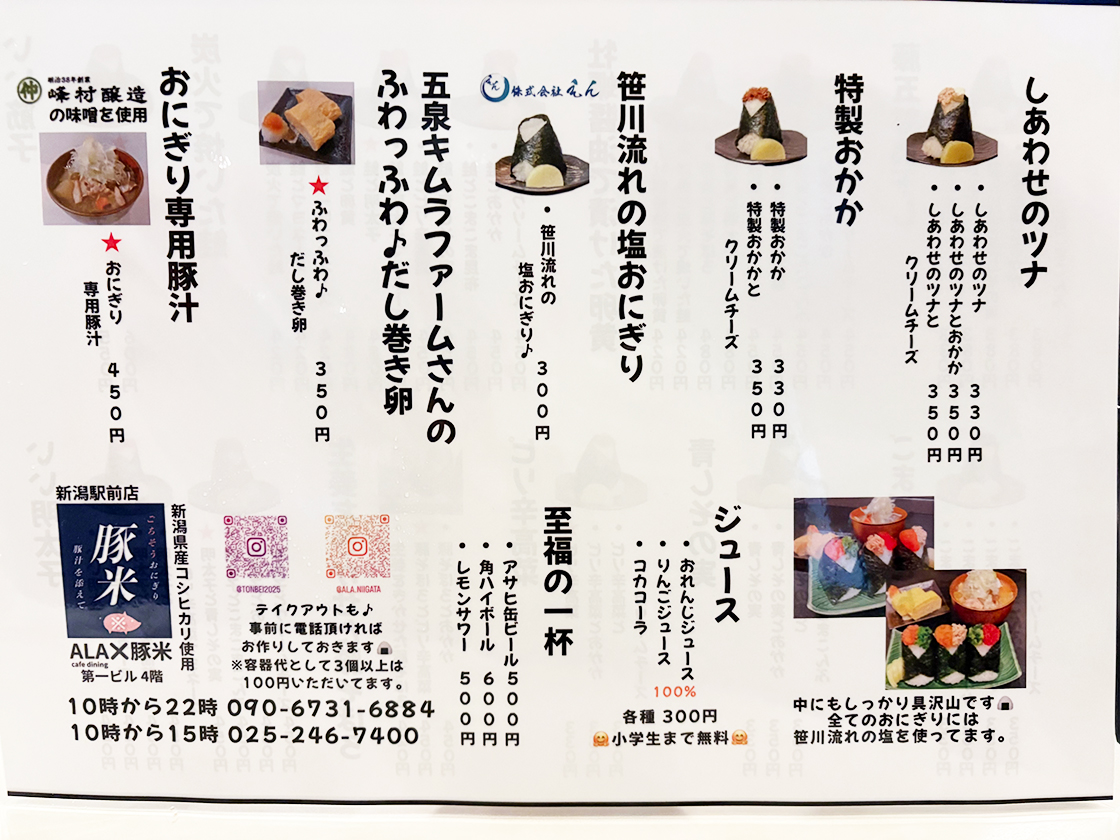 しあわせのツナ
・しあわせのツナ 330円
・しあわせのツナとおかか 350円
・しあわせのツナと
クリームチーズ 350円
特製おかか
・特製おかか 330円
・特製おかかと
クリームチーズ 350円
笹川流れの塩おにぎり
えん 株式会社えん
・笹川流れの
塩おにぎり♪ 300円
五泉キムラファームさんの
ふわっふわ♪だし巻き卵
★ふわっふわ♪
だし巻き卵 350円
おにぎり専用豚汁
仲 明治38年創業
峰村醸造
の味噌を使用
★おにぎり
専用豚汁 450円
中にもしっかり具沢山です🍙
全てのおにぎりには
笹川流れの塩を使ってます。
ジュース
・おれんじジュース
・りんごジュース
・コカコーラ
100%
各種 300円
🤗小学生まで無料🤗
至福の一杯
・アサヒ缶ビール 500円
・角ハイボール 600円
・レモンサワー 500円
@TONBEI2025
@ALA.NIIGATA
テイクアウトも♪
事前に電話頂ければ
お作りしておきます🍙
※容器代として3個以上は
100円いただいてます。
新潟駅前店
新潟県産コシヒカリ使用
ごちそうおにぎり
豚米
豚汁を添えて
ALA×豚米
cafe dining
第一ビル 4階
10時から22時 090-6731-6884
10時から15時 025-246-7400